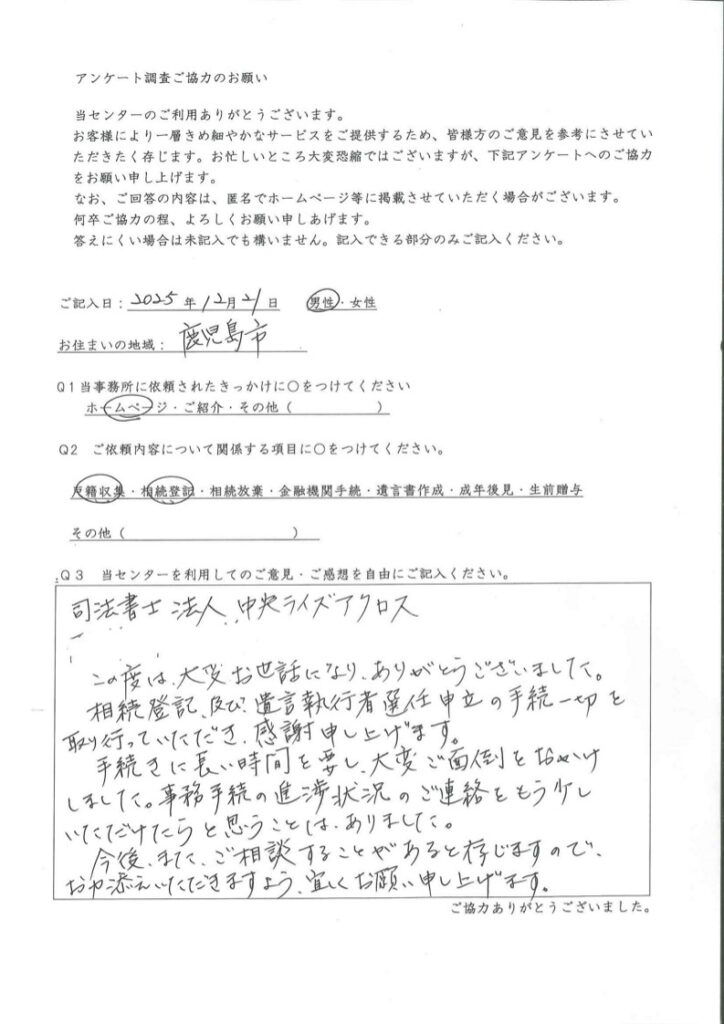 アンケート調査ご協力のお願い
当センターのご利用ありがとうございます。
お客様により一層きめ細やかなサービスをご提供するため、皆様方のご意見を参考にさせてい
ただきたく存じます。お忙しいところ大変恐縮ではございますが、下記アンケートへのご協力
をお願い申し上げます。
なお、ご回答の内容は、匿名でホームページ等に掲載させていただく場合がございます。
何卒ご協力の程、よろしくお願い申しあげます。
答えにくい場合は未記入でも構いません。記入できる部分のみご記入ください。
ご記入日：2025年12月21日 男性・女性
お住まいの地域：鹿児島市
Q1当事務所に依頼されたきっかけに○をつけてください
ホームページ・ご紹介・その他（　　　　　　）
Q2 ご依頼内容について関係する項目に○をつけてください。
戸籍収集・相続登記・相続放棄・金融機関手続・遺言書作成・成年後見・生前贈与
その他（　　　　　　　　　　　　）
Q3 当センターを利用してのご意見・ご感想を自由にご記入ください。
司法書士法人 中央ライズアクロス
この度は、大変お世話になり、ありがとうございました。
相続登記、及び、遺言執行者選任申立の手続一切を
取り行っていただき、感謝申し上げます。
手続きに長い時間を要し、大変ご面倒をおかけ
しました。事務手続の進渉状況のご連絡をもう少し
いただけたらと思うことは、ありました。
今後、また、ご相談することがあると存じますので、
お力添えいただきますよう、宜しくお願い申し上げます。
ご協力ありがとうございました。